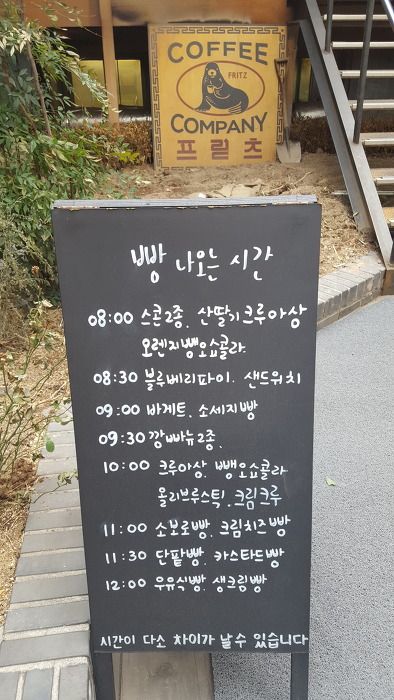 COFFEE
FRITZ
COMPANY
프릳츠
빵 나오는 시간
08:00 스콘2종. 산딸기크루아상
오렌지뺑오쇼콜라.
08:30 블루베리파이. 샌드위치
09:00 바게트. 소세지빵
09:30 깜빠뉴2종.
10:00 크루아상. 뺑오쇼콜라
올리브루스틱. 크림크루
11:00 소보로빵. 크림치즈빵
11:30 단팥빵. 카스타드빵
12:00 우유식빵. 생크림빵
시간이 다소 차이가 날 수 있습니다